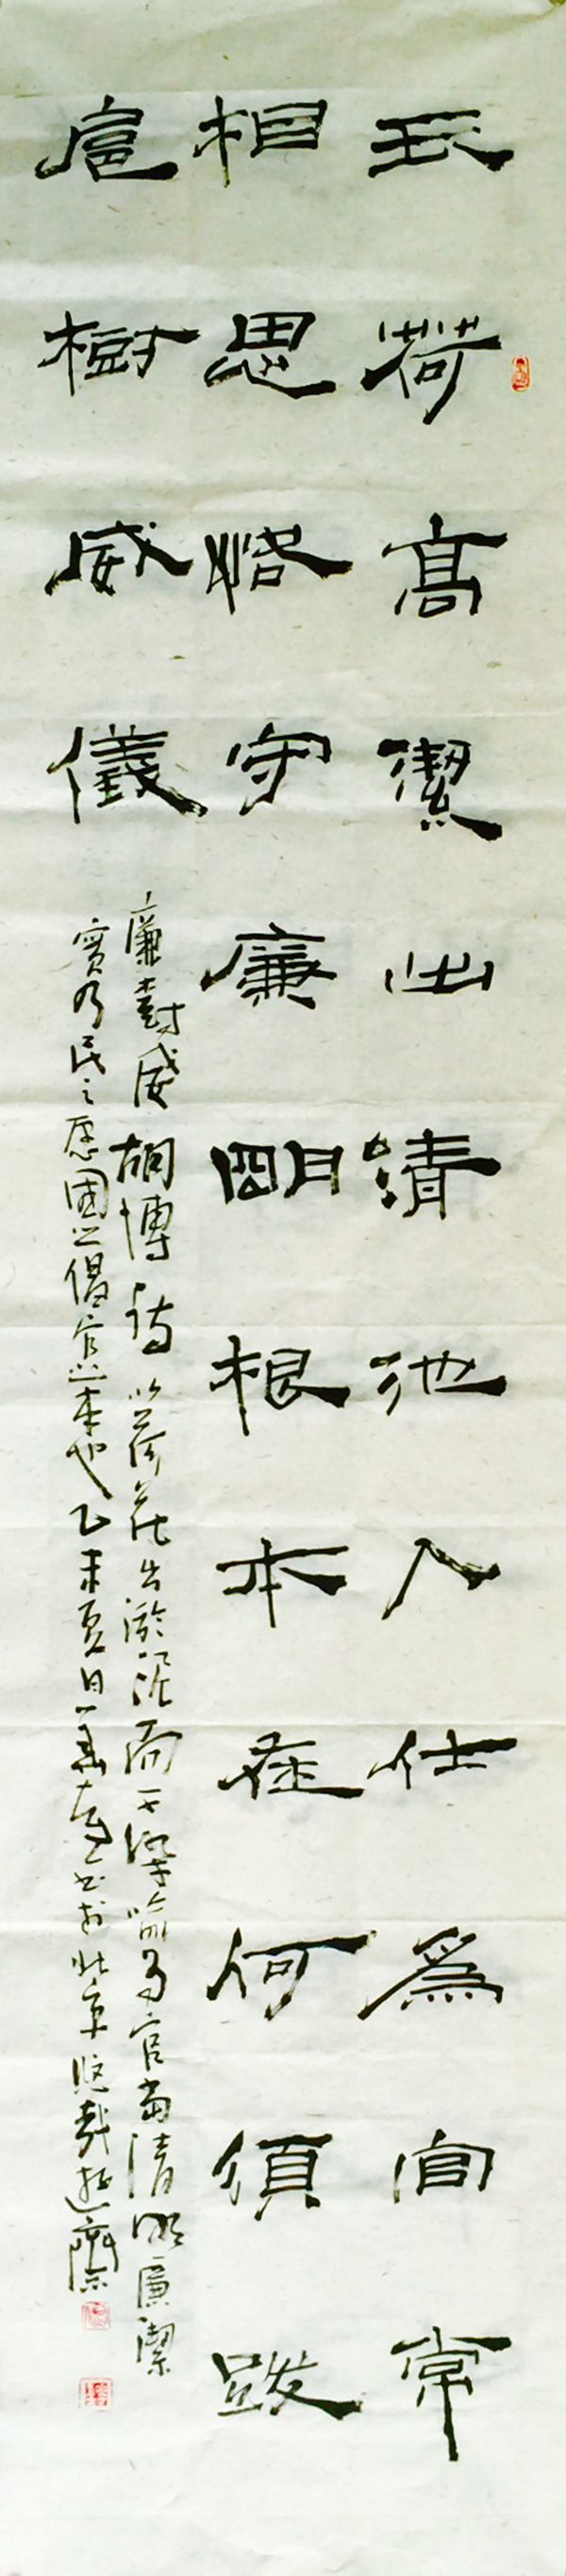 玉荷高潔出清池入仕爲官常
相思恪守廉明根本在何須跋
扈樹威儀
廉樹威胡博詩以荷花出淤泥而不染喻为官當清明廉潔
實乃民之愿國之倡官之本也乙未夏日書於北京